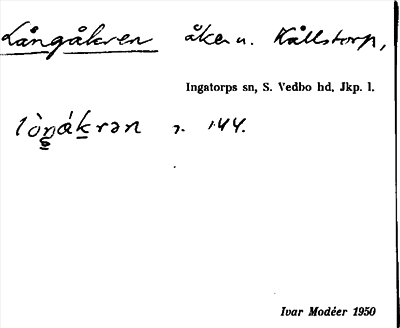 Långåkren åker u. Källstorp,
Ingatorps sn, S. Vedbo hd, Jkp. l.
lòŋákrən 144.
Ivar Modéer 1950